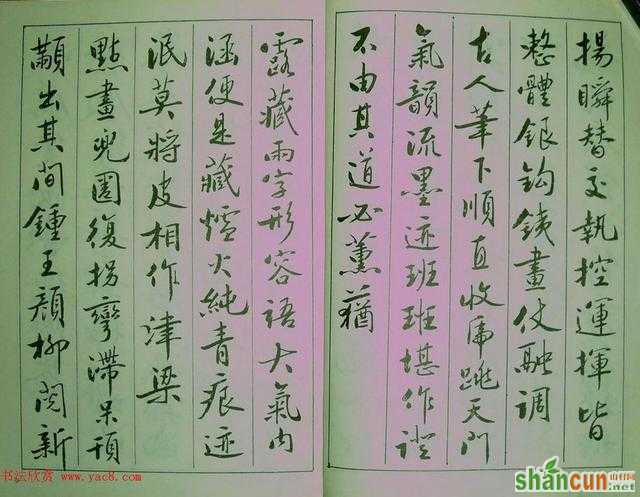 揚瞬替交執控運揮皆
整體銀鈎銕畫仗融調
古人筆下順直收虎跳天門
氣韻流墨迹班班堪作證
不由其道必薰蕕
露藏兩字形容語大氣内
涵便是藏爐火純青痕迹
泯莫將皮相作津梁
點畫兜圈復拐彎滯呆頇
顢出其間鍾王顔柳閱新
书法欣赏 www.yac8.com
shancun
.net